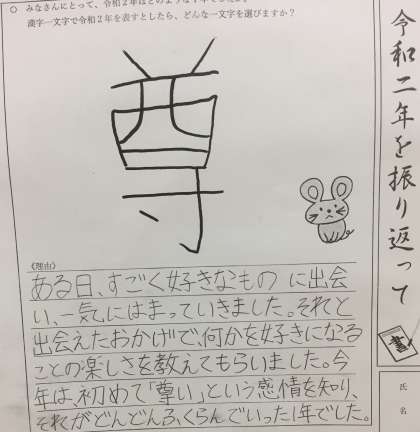 漢字一文字で令和2年を表すとしたら、どんな一文字を選びますか？
尊
《理由》
ある日、すごく好きなもの に出会
い、一気にはまっていきました。それと
出会えたおかげで、何かを好きになる
ことの楽しさを教えてもらいました。今
年は、初めて「尊い」という感情を知り、
それがどんどんふくらんでいった1年でした。
令和二年を振り返って
書
氏
名